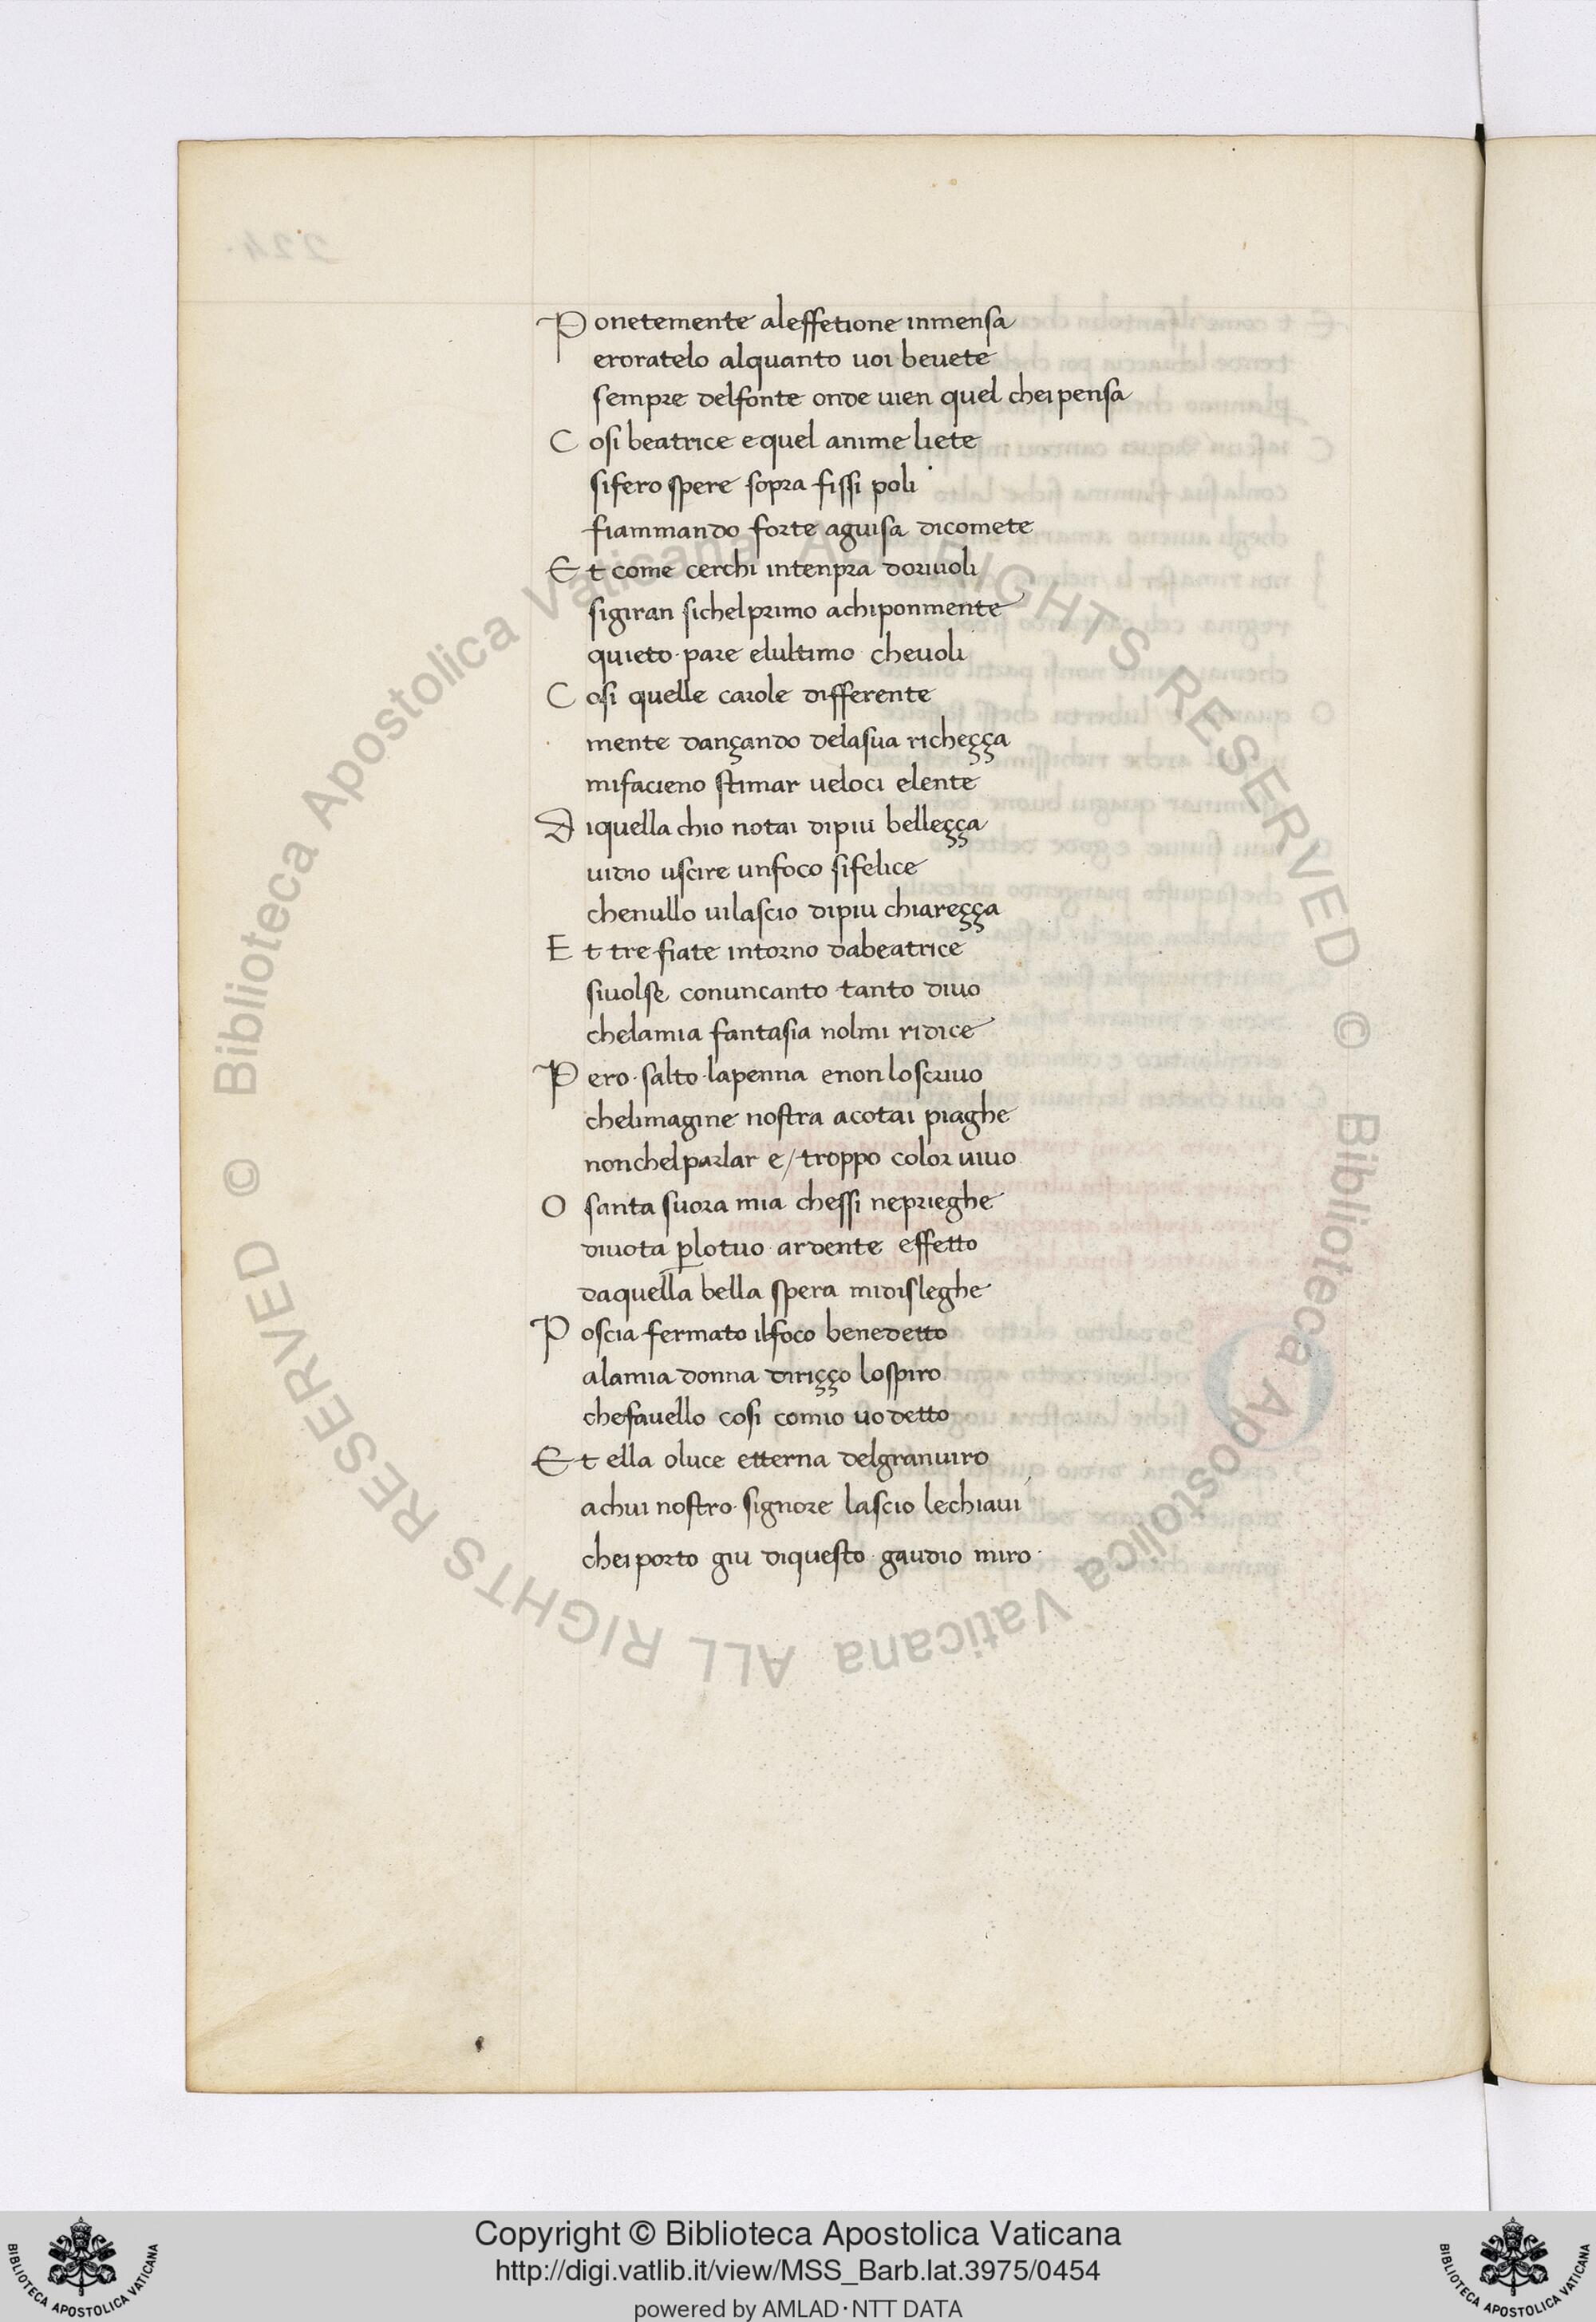 Ponetemente aleffetione inmensa
eroratelo alquanto uoi beuete
sempre delfonte onde uien quel cheipensa
Cosi beatrice equel anime liete
sifero spere sopra fissi poli
fiammando forte aguisa dicomete
Et come cerchi intenpra doriuoli
sigiran sichelprimo achiponmente
quieto· pare elultimo cheuoli
Cosi quelle carole differente
mente dançando delasua richeçça
mifacieno stimar ueloci elente
Diquella chio notai dipiu belleçça
uidio uscire unfoco sifelice
chenullo uilascio dipiu chiareçça
Et tre fiate intorno dabeatrice
siuolse conuncanto tanto diuo
chelamia fantasia nolmi ridice
Pero· salto· lapenna enonloscriuo
chelimagine nostra acotai piaghe
nonchelparlar e/ troppo color uiuo
O santa suora mia chessi neprieghe
diuota plotuo· ardente effetto
daquella bella spera midisleghe
Poscia fermato ilfoco benedetto
alamia donna diriçço lospiro
chefauello cosi comio uodetto
Et ella oluce etterna delgranuiro
achui nostro· signore lascio lechiaui
cheiporto giu diquesto· gaudio miro·
224.
© Biblioteca Apostolica Vaticana ALL RIGHTS RESERVED © Biblioteca Apostolica Vaticana ALL RIGHTS RESERVED
Copyright © Biblioteca Apostolica Vaticana
http://digi.vatlib.it/view/MSS_Barb.lat.3975/0454
powered by AMLAD·NTT DATA
BIBLIOTECA APOSTOLICA VATICANA
BIBLIOTECA APOSTOLICA VATICANA